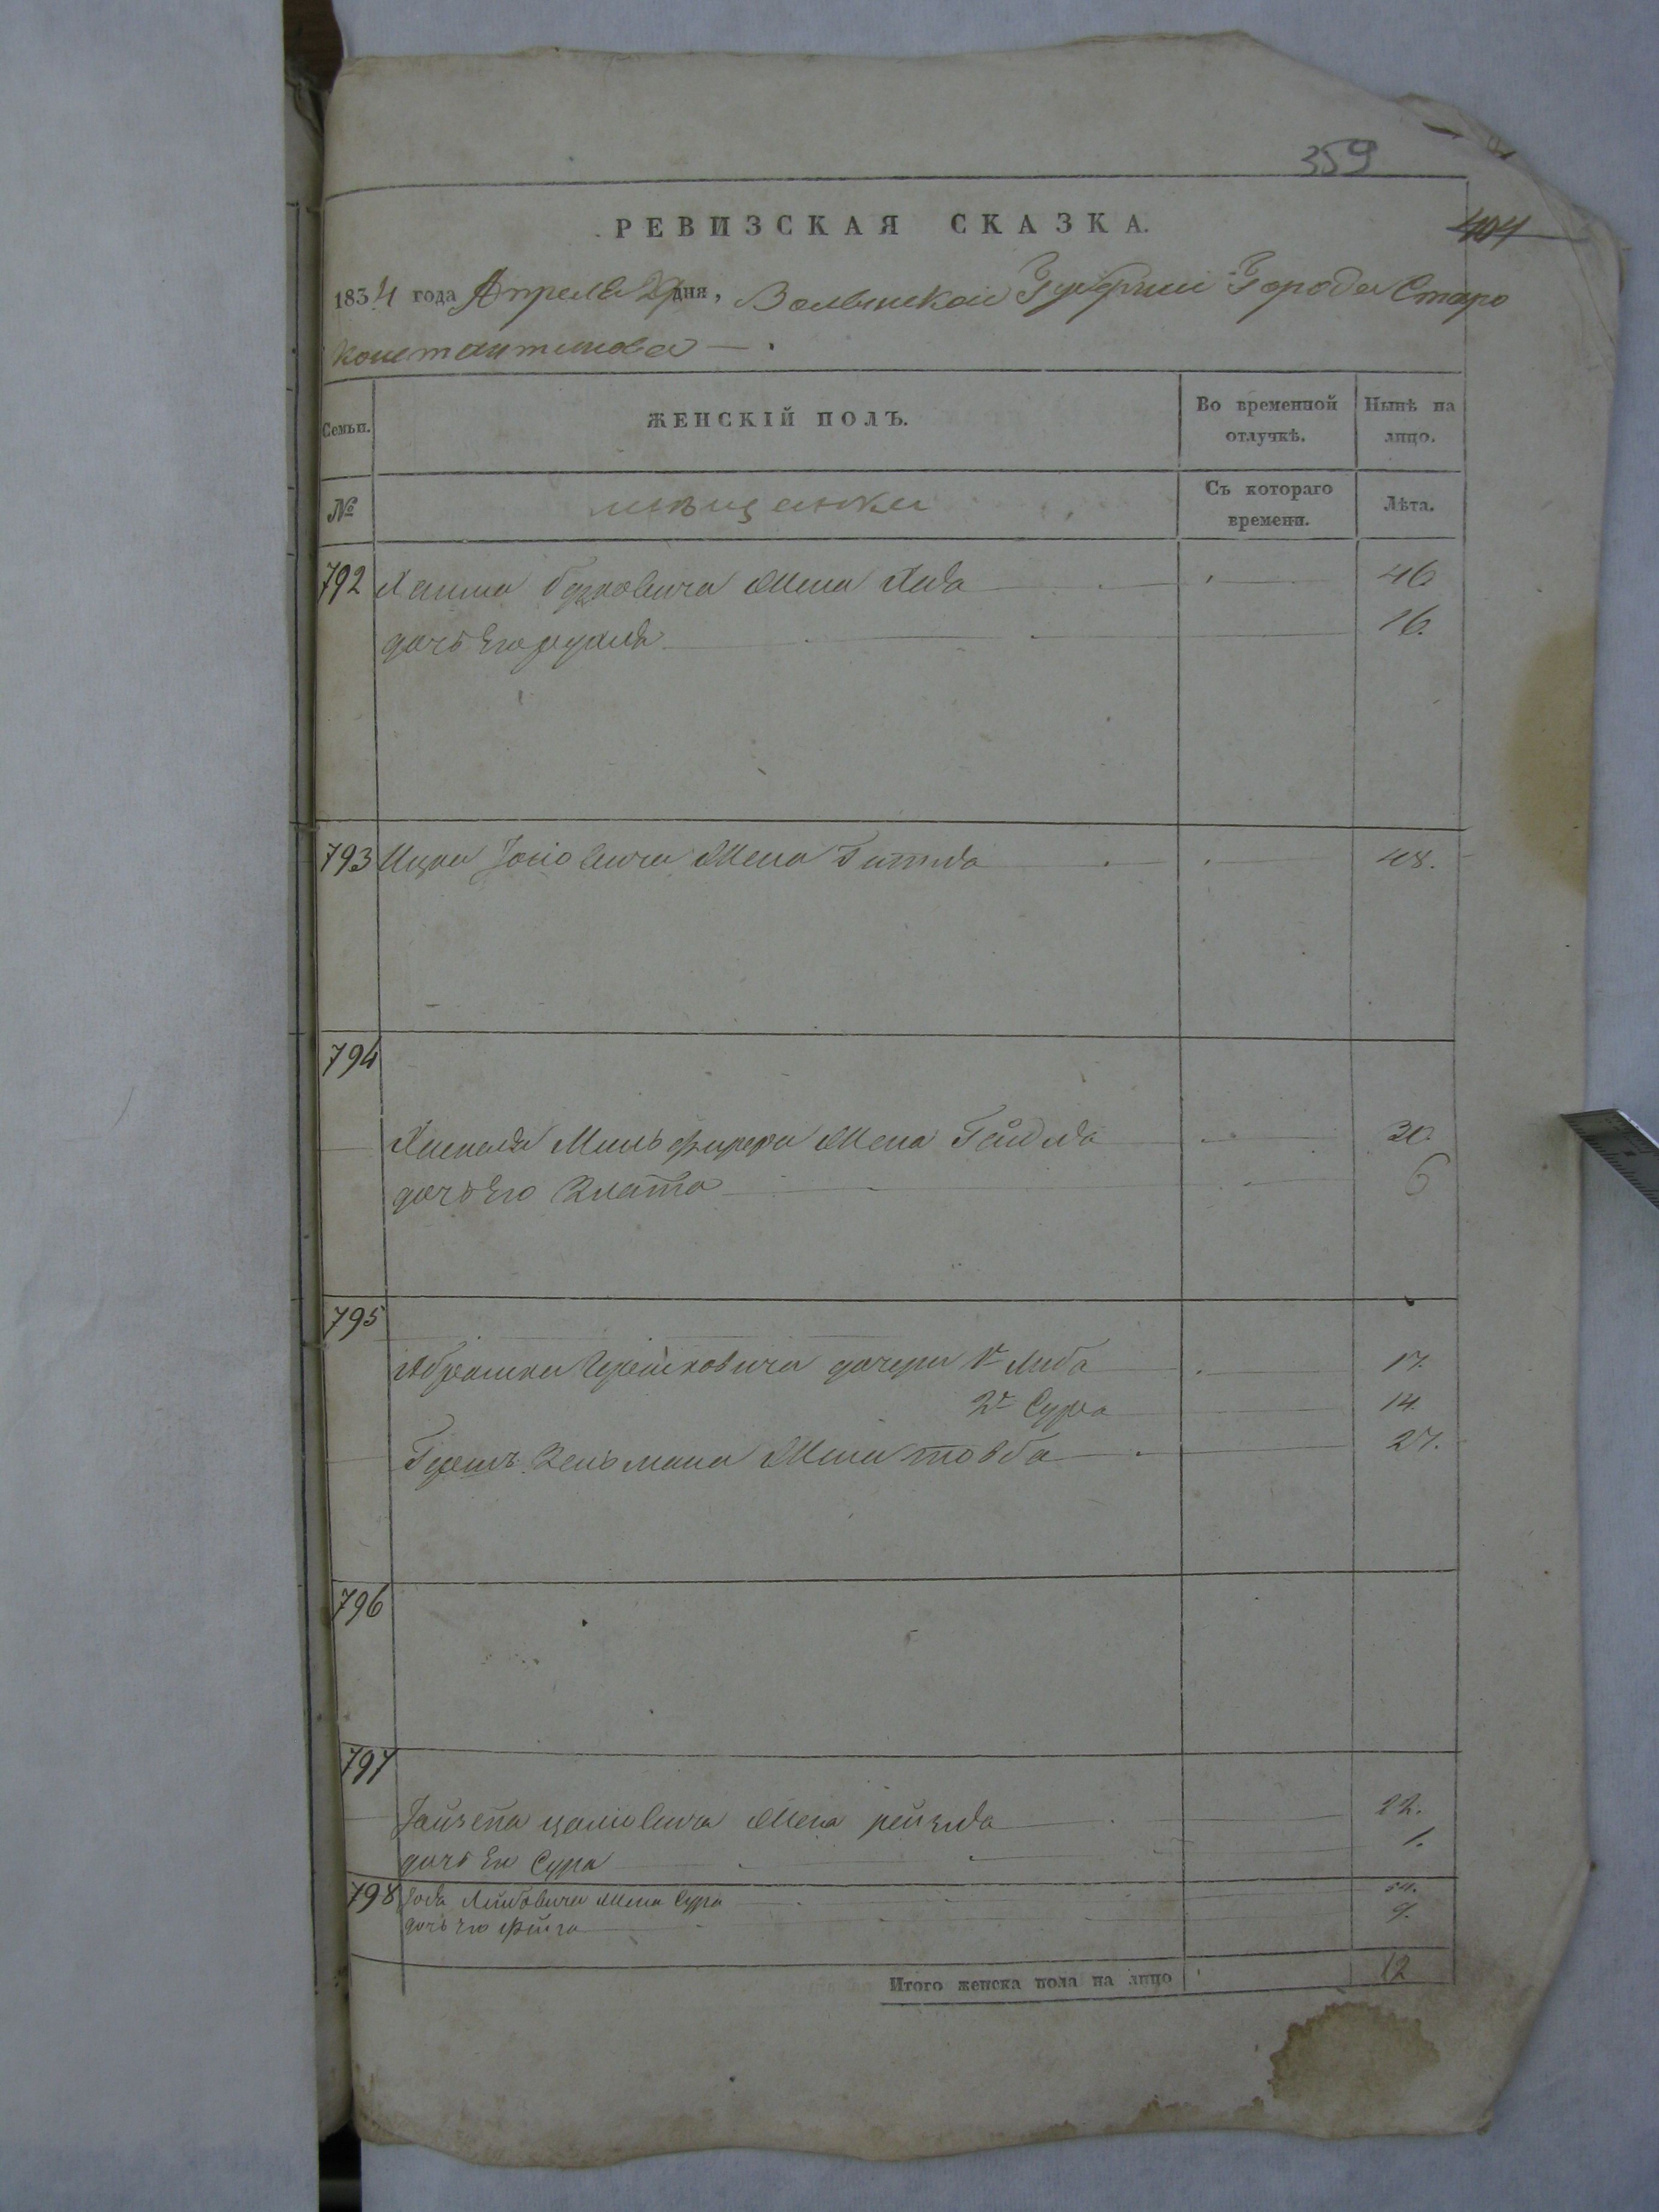 359
РЕВИЗСКАЯ СКАЗКА.
404
1834 года Апреля дня, Волынской Губернии Города Старо
константинова
Семьи.
ЖЕНСКІЙ ПОЛЪ.
Во временной отлучкѣ.
Нынѣ на лицо.
№
мѣщанки
Съ котораго времени.
Лѣта.
792 Хаима жена 46
дочь Его 16.
793 Ицка Іосіовича жена Гитля 48.
794
жена Гейдля 30.
дочь Его Злата 6
795
Абрамка Гершковича дочери 1я Либа 17.
2я Сура 14.
Гершъ Зельмана жена товба 27.
796
797
жена рейзля 22.
дочь Ею Сура 1.
798 Лейбовича жена Сура 54.
дочь его Фейга 9.
Итого женска пола на лицо 12